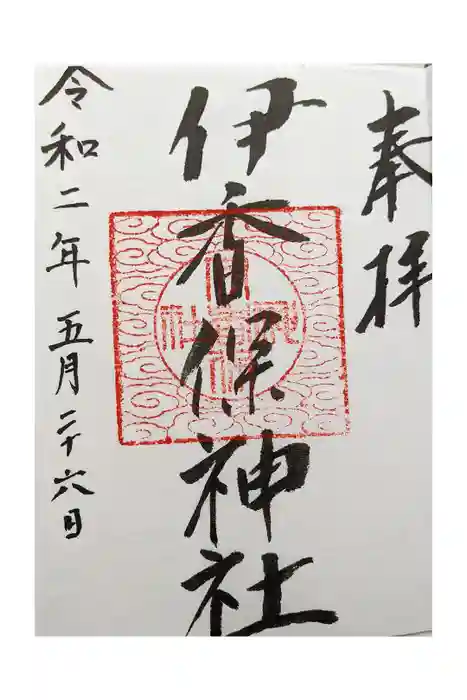 奉拝
伊香保神社
令和二年 五月二十六日